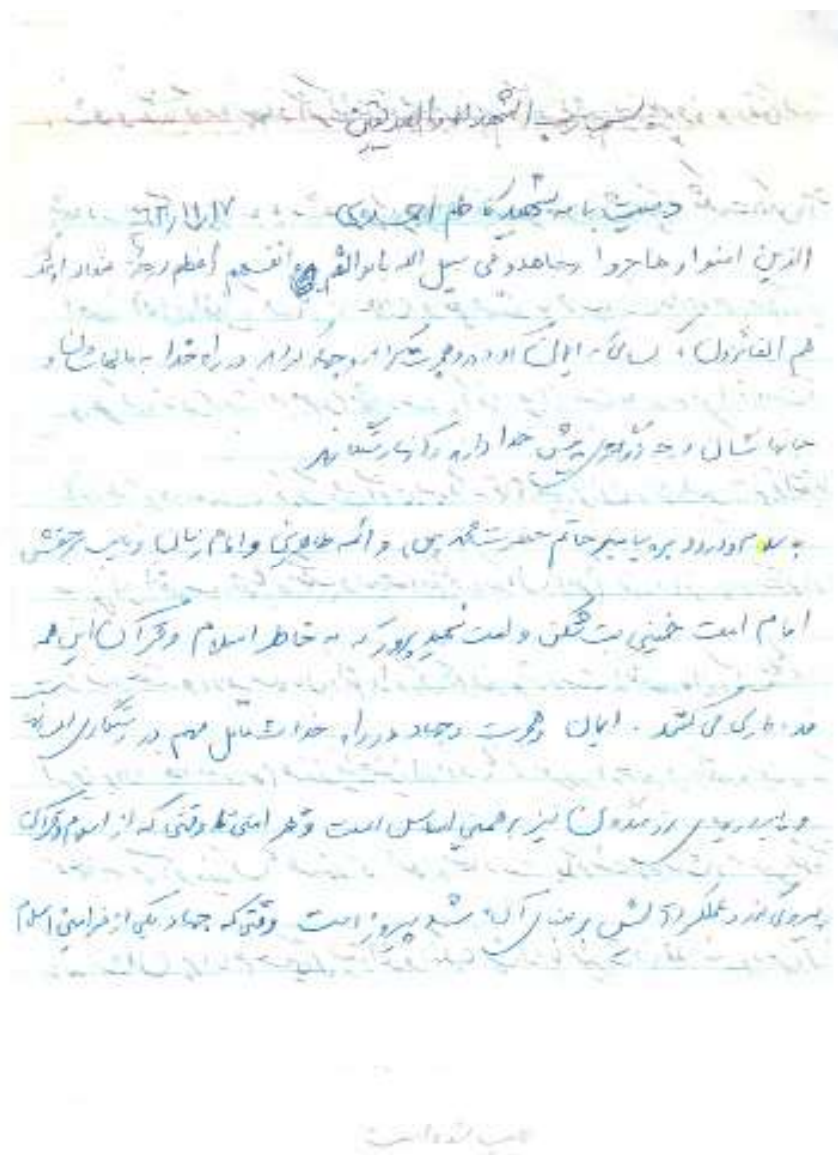 بسم رب الشهداء والصدیقین
وصیت نامه شهید کاظم ۶۳/۱۱/۱۷
الذین امنوا و هاجروا وجاهدو فی سبیل الله باموالهم و انفسهم اعظم درجة عنداله
هم الفائزون کسانی که ایمان آوردند و هجرت کردند و جهاد کردند در راه خدا به مالهاشان و
جانهاشان درجه بزرگی پیش خدا دارند و آنها رستگارانند
به سلام و درود بر پیامبر خاتم حضرت محمد (ص) و ائمه طاهرین و امام زمان و نایب برحقش
امام امت خمینی بت شکن و امت شهید پرور که به خاطر اسلام و قرآن این همه
فداکاری می کنند . ایمان و هجرت و جهاد در راه خدا سه عامل مهم در رستگاری انسانهاست
و پیروزی رزمندگان نیز بر همین اساس است و هر امتی تا وقتی که از اسلام و قرآن
پیروی کند و عملکردش بر مبنای آن باشد پیروز است وقتی که جهاد یکی از فرامین اسلام